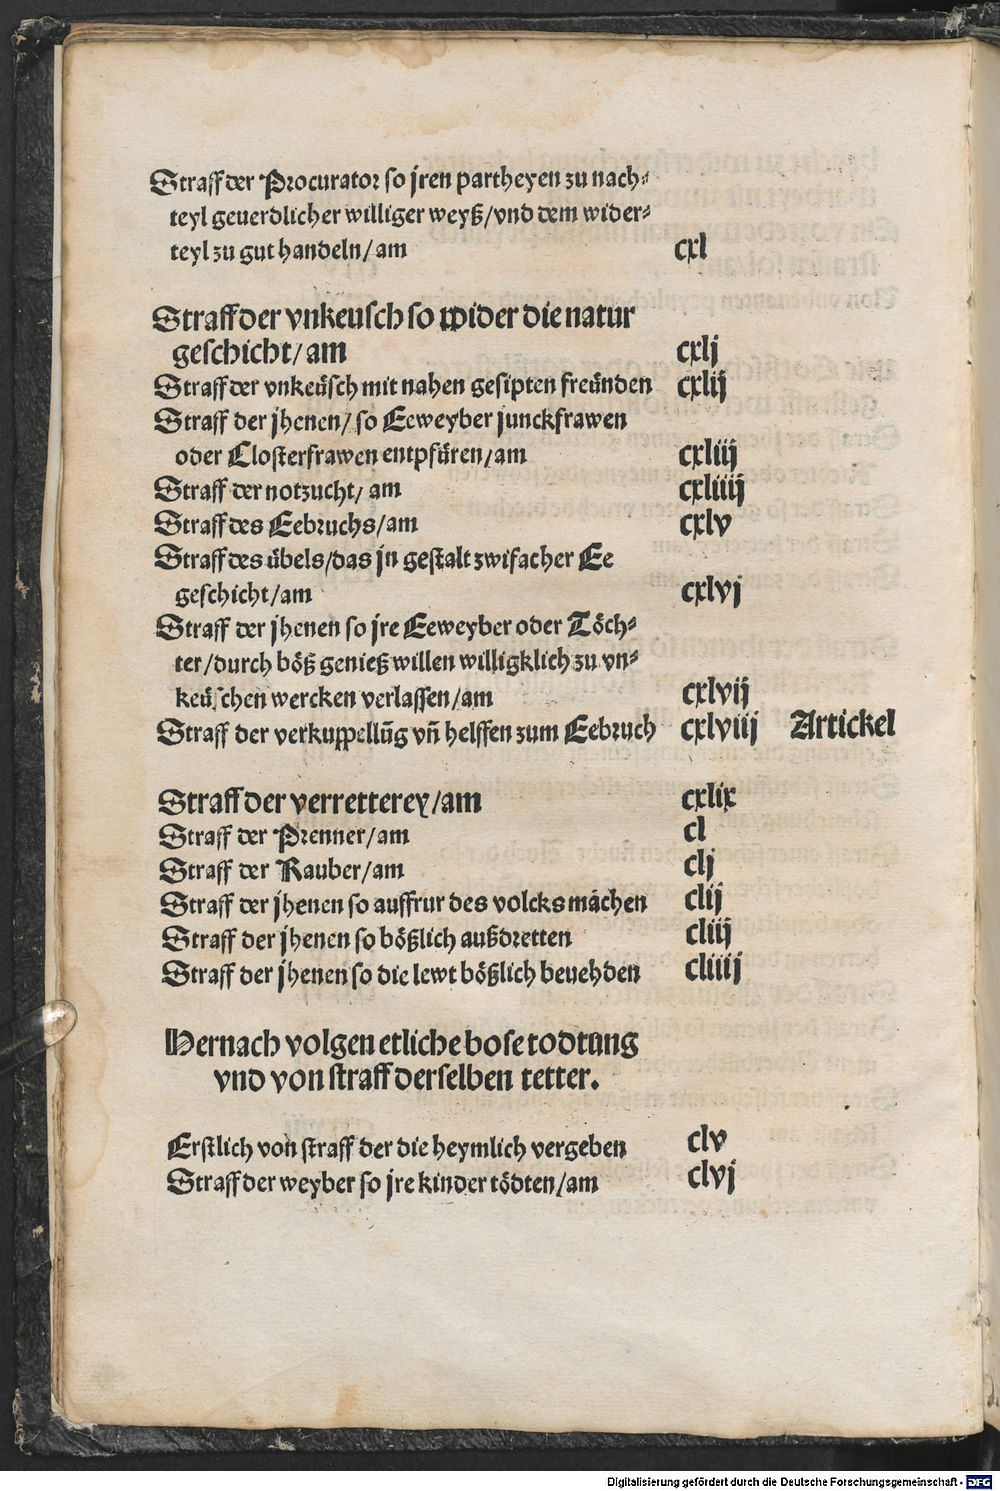 Straff der Procurator so jren partheyen zu nach-
teyl geuerdlicher williger weyß/vnd dem wider-
teyl zu gut handeln/am cxl
Straff der vnkeusch so wider die natur
geschicht/am cxlj
Straff der vnkeüsch mit nahen gesipten freünden cxlij
Straff der jhenen/so Eeweyber junckfrawen
oder Closterfrawen entpfüren/am cxliij
Straff der notzucht/am cxliiij
Straff des Eebruchs/am cxlv
Straff des übels/das jn gestalt zwifacher Ee
geschicht/am cxlvj
Straff der jhenen so jre Eeweyber oder Töch-
ter/durch böß genieß willen williglich zu vn-
keüschen wercken verlassen/am cxlvij
Straff der verkuppellūg vn̄ helffen zum Eebruch cxlviij Artickel
Straff der verretterey/am cxlix
Straff der Prenner/am cl
Straff der Rauber/am clj
Straff der jhenen so auffrur des volcks machen clij
Straff der jhenen so bößlich außdretten cliij
Straff der jhenen so die lewt bößlich beuehden cliiij
Hernach volgen etliche bose todtung
vnd von straff derselben tetter.
Erstlich von straff der die heymlich vergeben clv
Straff der weyber so jre kinder tödten/am clvj
Digitalisierung gefördert durch die Deutsche Forschungsgemeinschaft - DFG